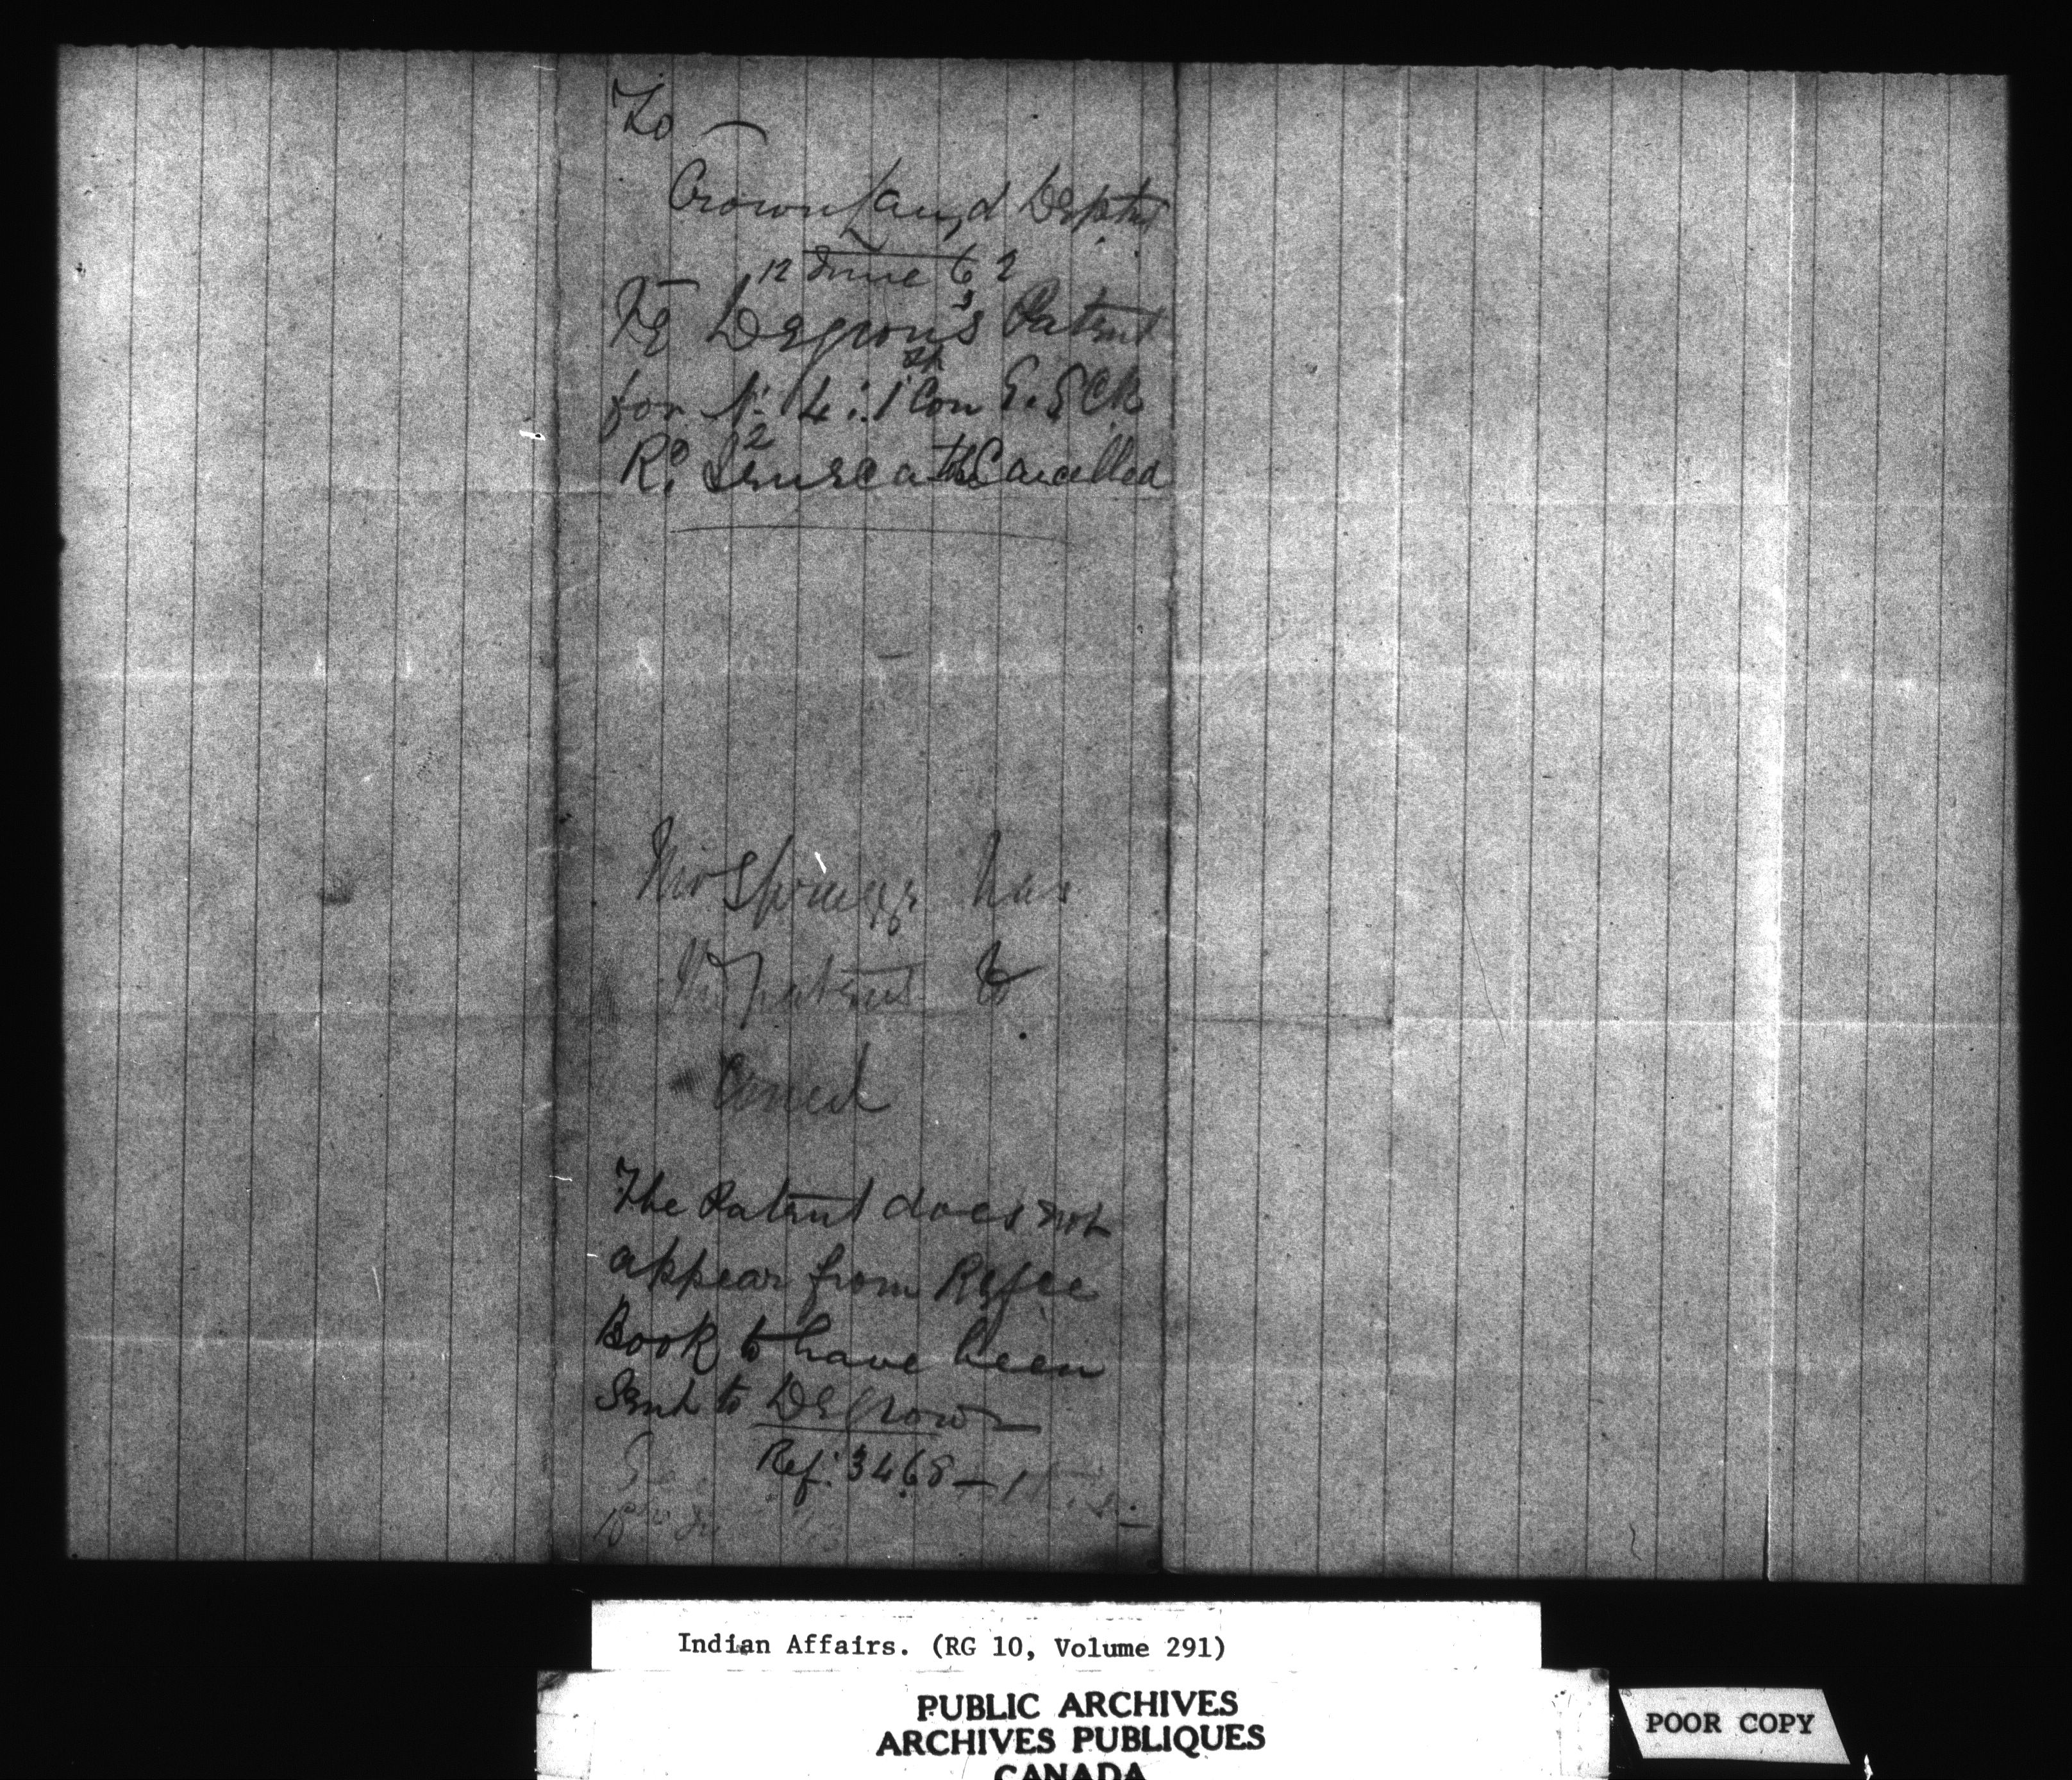 To
Crown Land Deptmt
12 June 62
Degrow's Patent
for Con
Seneca Cancelled
Mr Spragge has
patent to
Cancel
The Patent does not
appear from Refce
Book to have been
Sent to DeGrow
Ref: 3468 —
Indian Affairs. (RG 10, Volume 291)
PUBLIC ARCHIVES
ARCHIVES PUBLIQUES
CANADA
POOR COPY